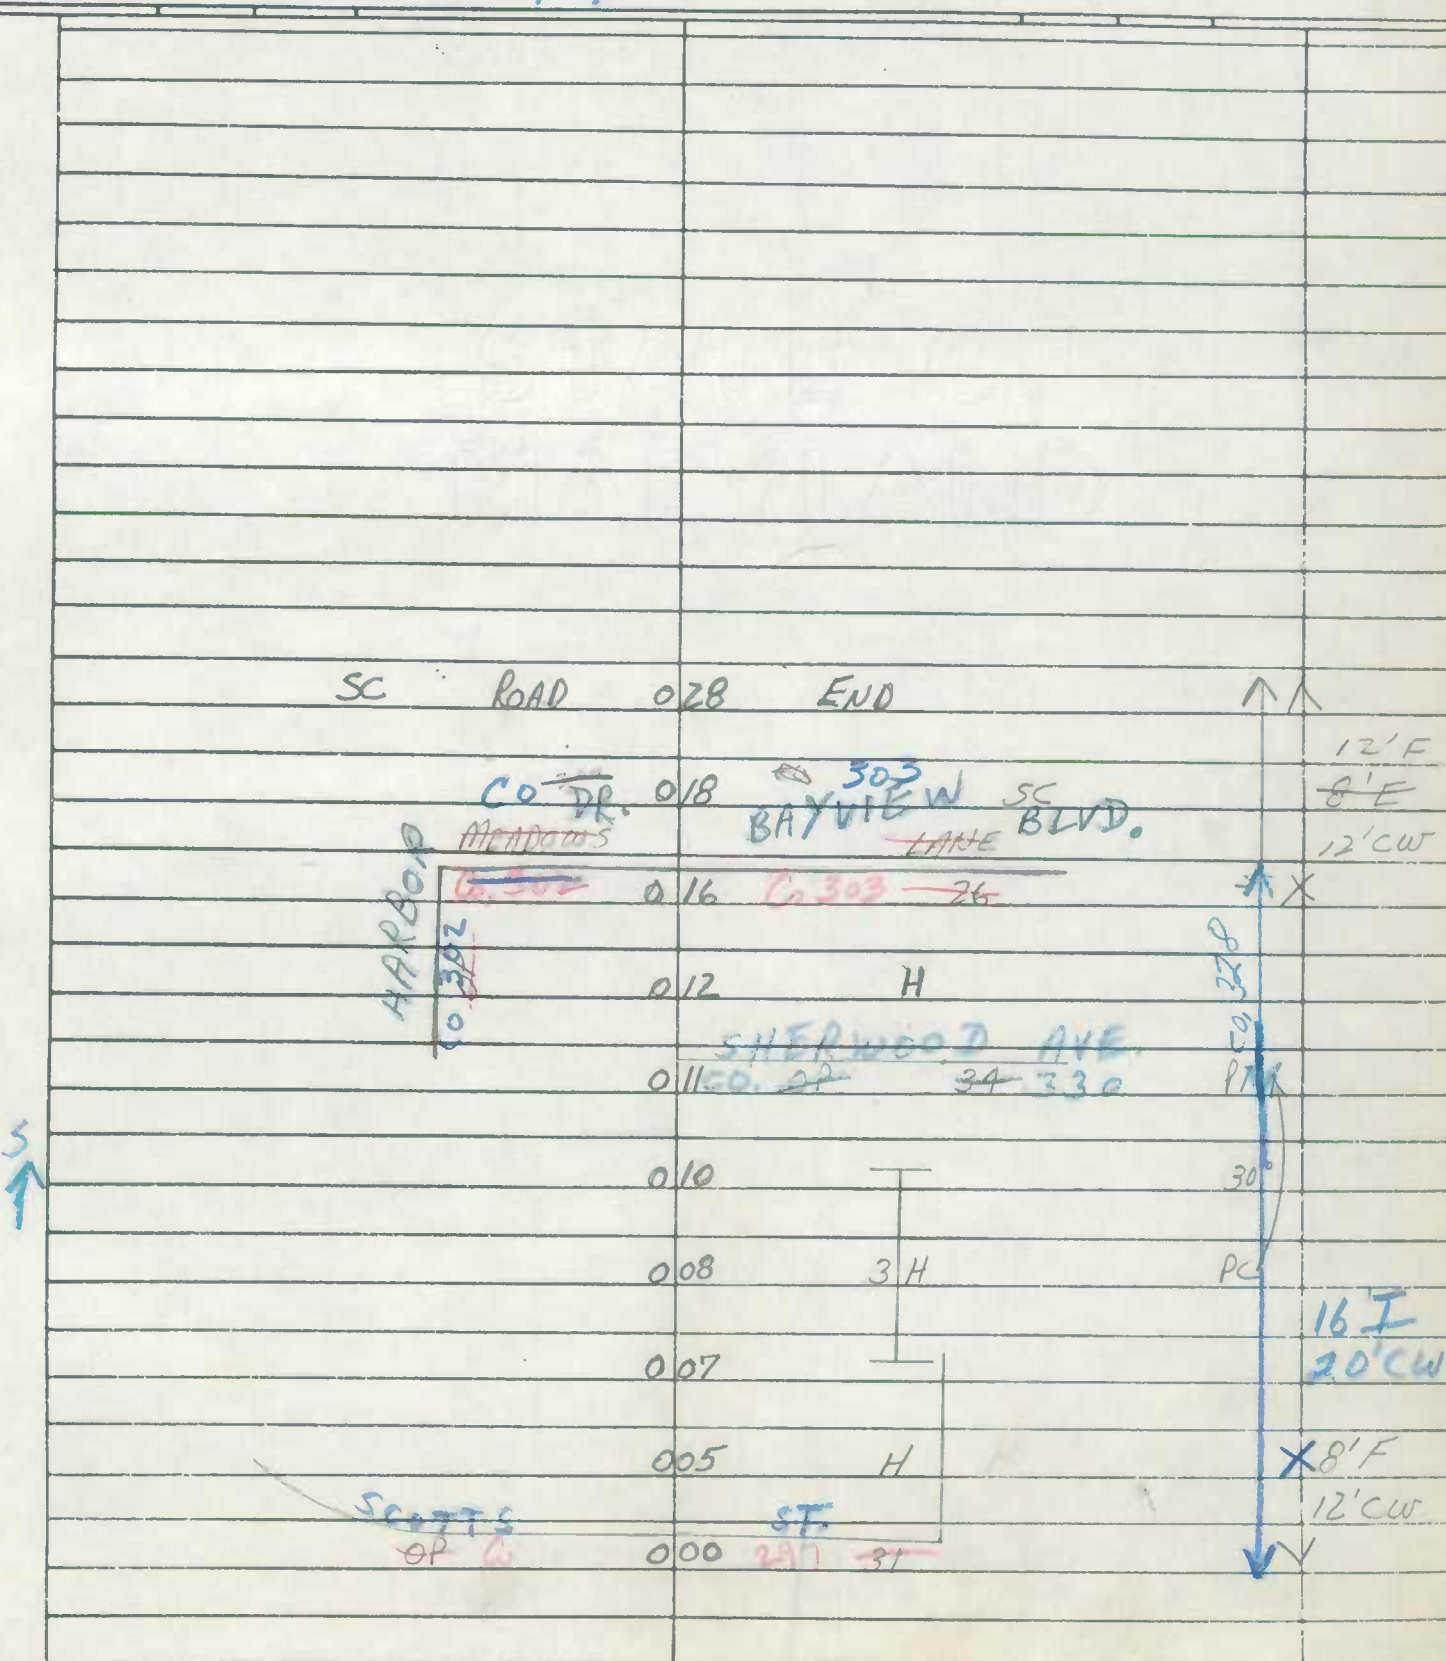 SC ROAD 028 END
12'F
CO DR. 018 303 SC
8'E
BAYVIEW BLVD.
MEADOWS LANE
12'CW
HARBOR
Co. 302 016 Co 303 26
CO 302
CO. 328
012 H
SHERWOOD AVE.
011 CO. OP 34 330
S
010 30°
008 3 H PC
16 I
20'CW
007
005 H 8'F
12'CW
SCOTTS ST.
OP Co 000 291 31